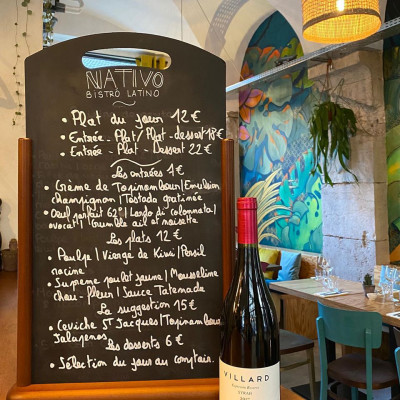 NATIVO
BISTRÒ LATINO
• Plat du jour 12 €
• Entrée - Plat / Plat - dessert 18 €
• Entrée - Plat - Dessert 22 €
Les entrées 4 €
• Creme de Topinambour / Emulsion
champignon / Tostada gratinée
• Oeuf parfait 62° / Lardo di colonnata /
avocat / Crumble ail et noisette
Les plats 12 €
• Poulpe / Vierge de Kiwi / Persil
racine
• Supreme poulet jaune / Mousseline
chou-fleur / Sauce Taternade
La suggestion 15 €
• Ceviche ST Jacques / Topinambour
Jalapenos
Les desserts 6 €
• Sélection du jour au comptoir.
VILLARD
SYRAH